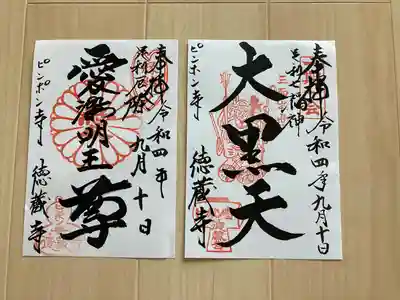 奉拝
令和四年
九月十日
愛染明王尊
ピンポン寺
徳蔵寺
奉拝
令和四年九月十日
足利七福神
大黒天
ピンポン寺
徳蔵寺